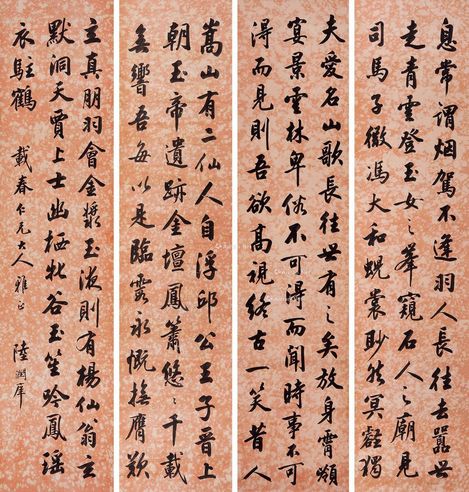 夫愛名山歌長往世有之矣放身霄嶺
宴景雲林卑俗不可得而聞時事不可
得而見則吾欲高視終古一笑昔人
嵩山有二仙人自浮邱公王子晉上
朝玉帝遺跡金壇鳳簫悠〻千載
無響吾每以是臨霞永慨撫膺歎
息常謂烟駕不逢羽人長往去囂世
走青雲登玉女之峯窺石人之廟見
司馬子微馮太和蜺裳眇然冥壑獨
立真朋羽會金漿玉液則有楊仙翁玄
默洞天賈上士幽栖牝谷玉笙吟鳳瑶
衣駐鶴 載春仁兄大人雅正 陸潤庠